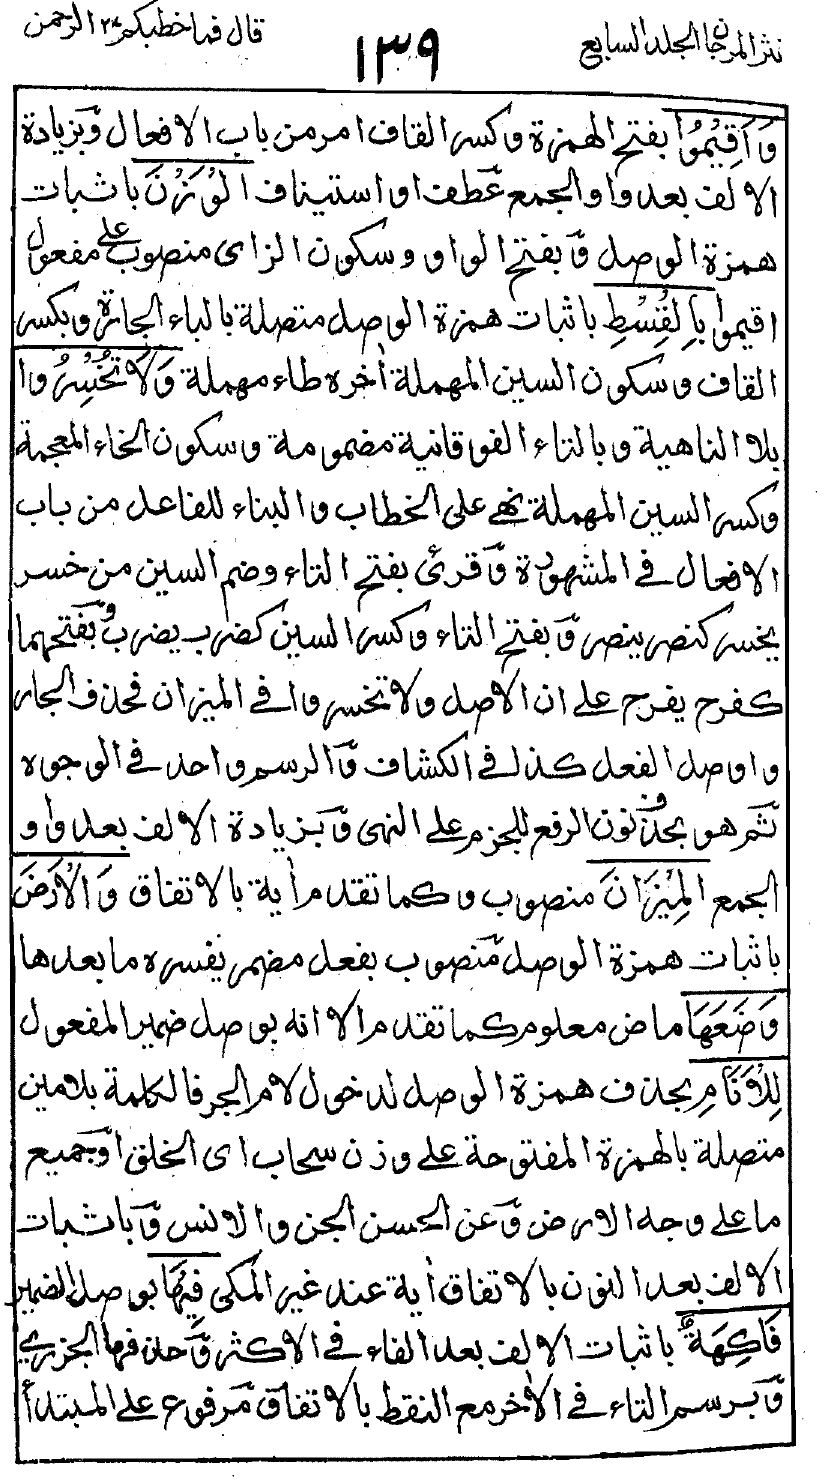 نثر المرجان الجلد السابع
١٣٩
قال فما خطبكم ٢٧ الرحمن
وَأَقِيمُوا بفتح الهمزة وكسر القاف امر من باب الافعال وبزيادة
الالف بعد واو الجمع عطف او استيناف الْوَزْنَ باثبات
همزة الوصل وبفتح الواو وسكون الزاى منصوب على مفعول
اقيموا بِالْقِسْطِ باثبات همزة الوصل متصلة بالباء الجارة وبكسر
القاف وسكون السين المهملة اٰخره طاء مهملة وَلَا تُخْسِرُوا
بلا الناهية وبالتاء الفوقانية مضمومة وسكون الخاء المعجمة
وكسر السين المهملة نهى على الخطاب والبناء للفاعل من باب
الافعال فى المشهورة وقرئ بفتح التاء وضم السين من خسر
يخسر كنصر ينصر وبفتح التاء وكسر السين كضرب يضرب وبفتحهما
كفرح يفرح على ان الاصل ولا تخسروا فى الميزان فحذف الجار
واوصل الفعل كذا فى الكشاف والرسم واحد فى الوجوه
ثم هو بحذف نون الرفع للجزم على النهى وبزيادة الالف بعد واو
الجمع الْمِيْزَانَ منصوب وكما تقدم اٰية بالاتفاق وَالْاَرْضَ
باثبات همزة الوصل منصوب بفعل مضمر يفسره ما بعدها
وَضَعَهَا ماض معلوم كما تقدم الا انه بوصل ضمير المفعول
لِلْاَنَامِ بحذف همزة الوصل لدخول لام الجر فالكلمة بلامين
متصلة بالهمزة المفتوحة على وزن سحاب اى الخلق او جميع
ما على وجه الارض وعن الحسن الجن والانس وباثبات
الالف بعد النون بالاتفاق اٰية عند غير المكى فِيْهَا بوصل الضمير
فَاكِهَةٌ باثبات الالف بعد الفاء فى الاكثر وحذفها الجزرى
وبرسم التاء فى الاٰخر مع النقط بالاتفاق مرفوع على المبتدأ